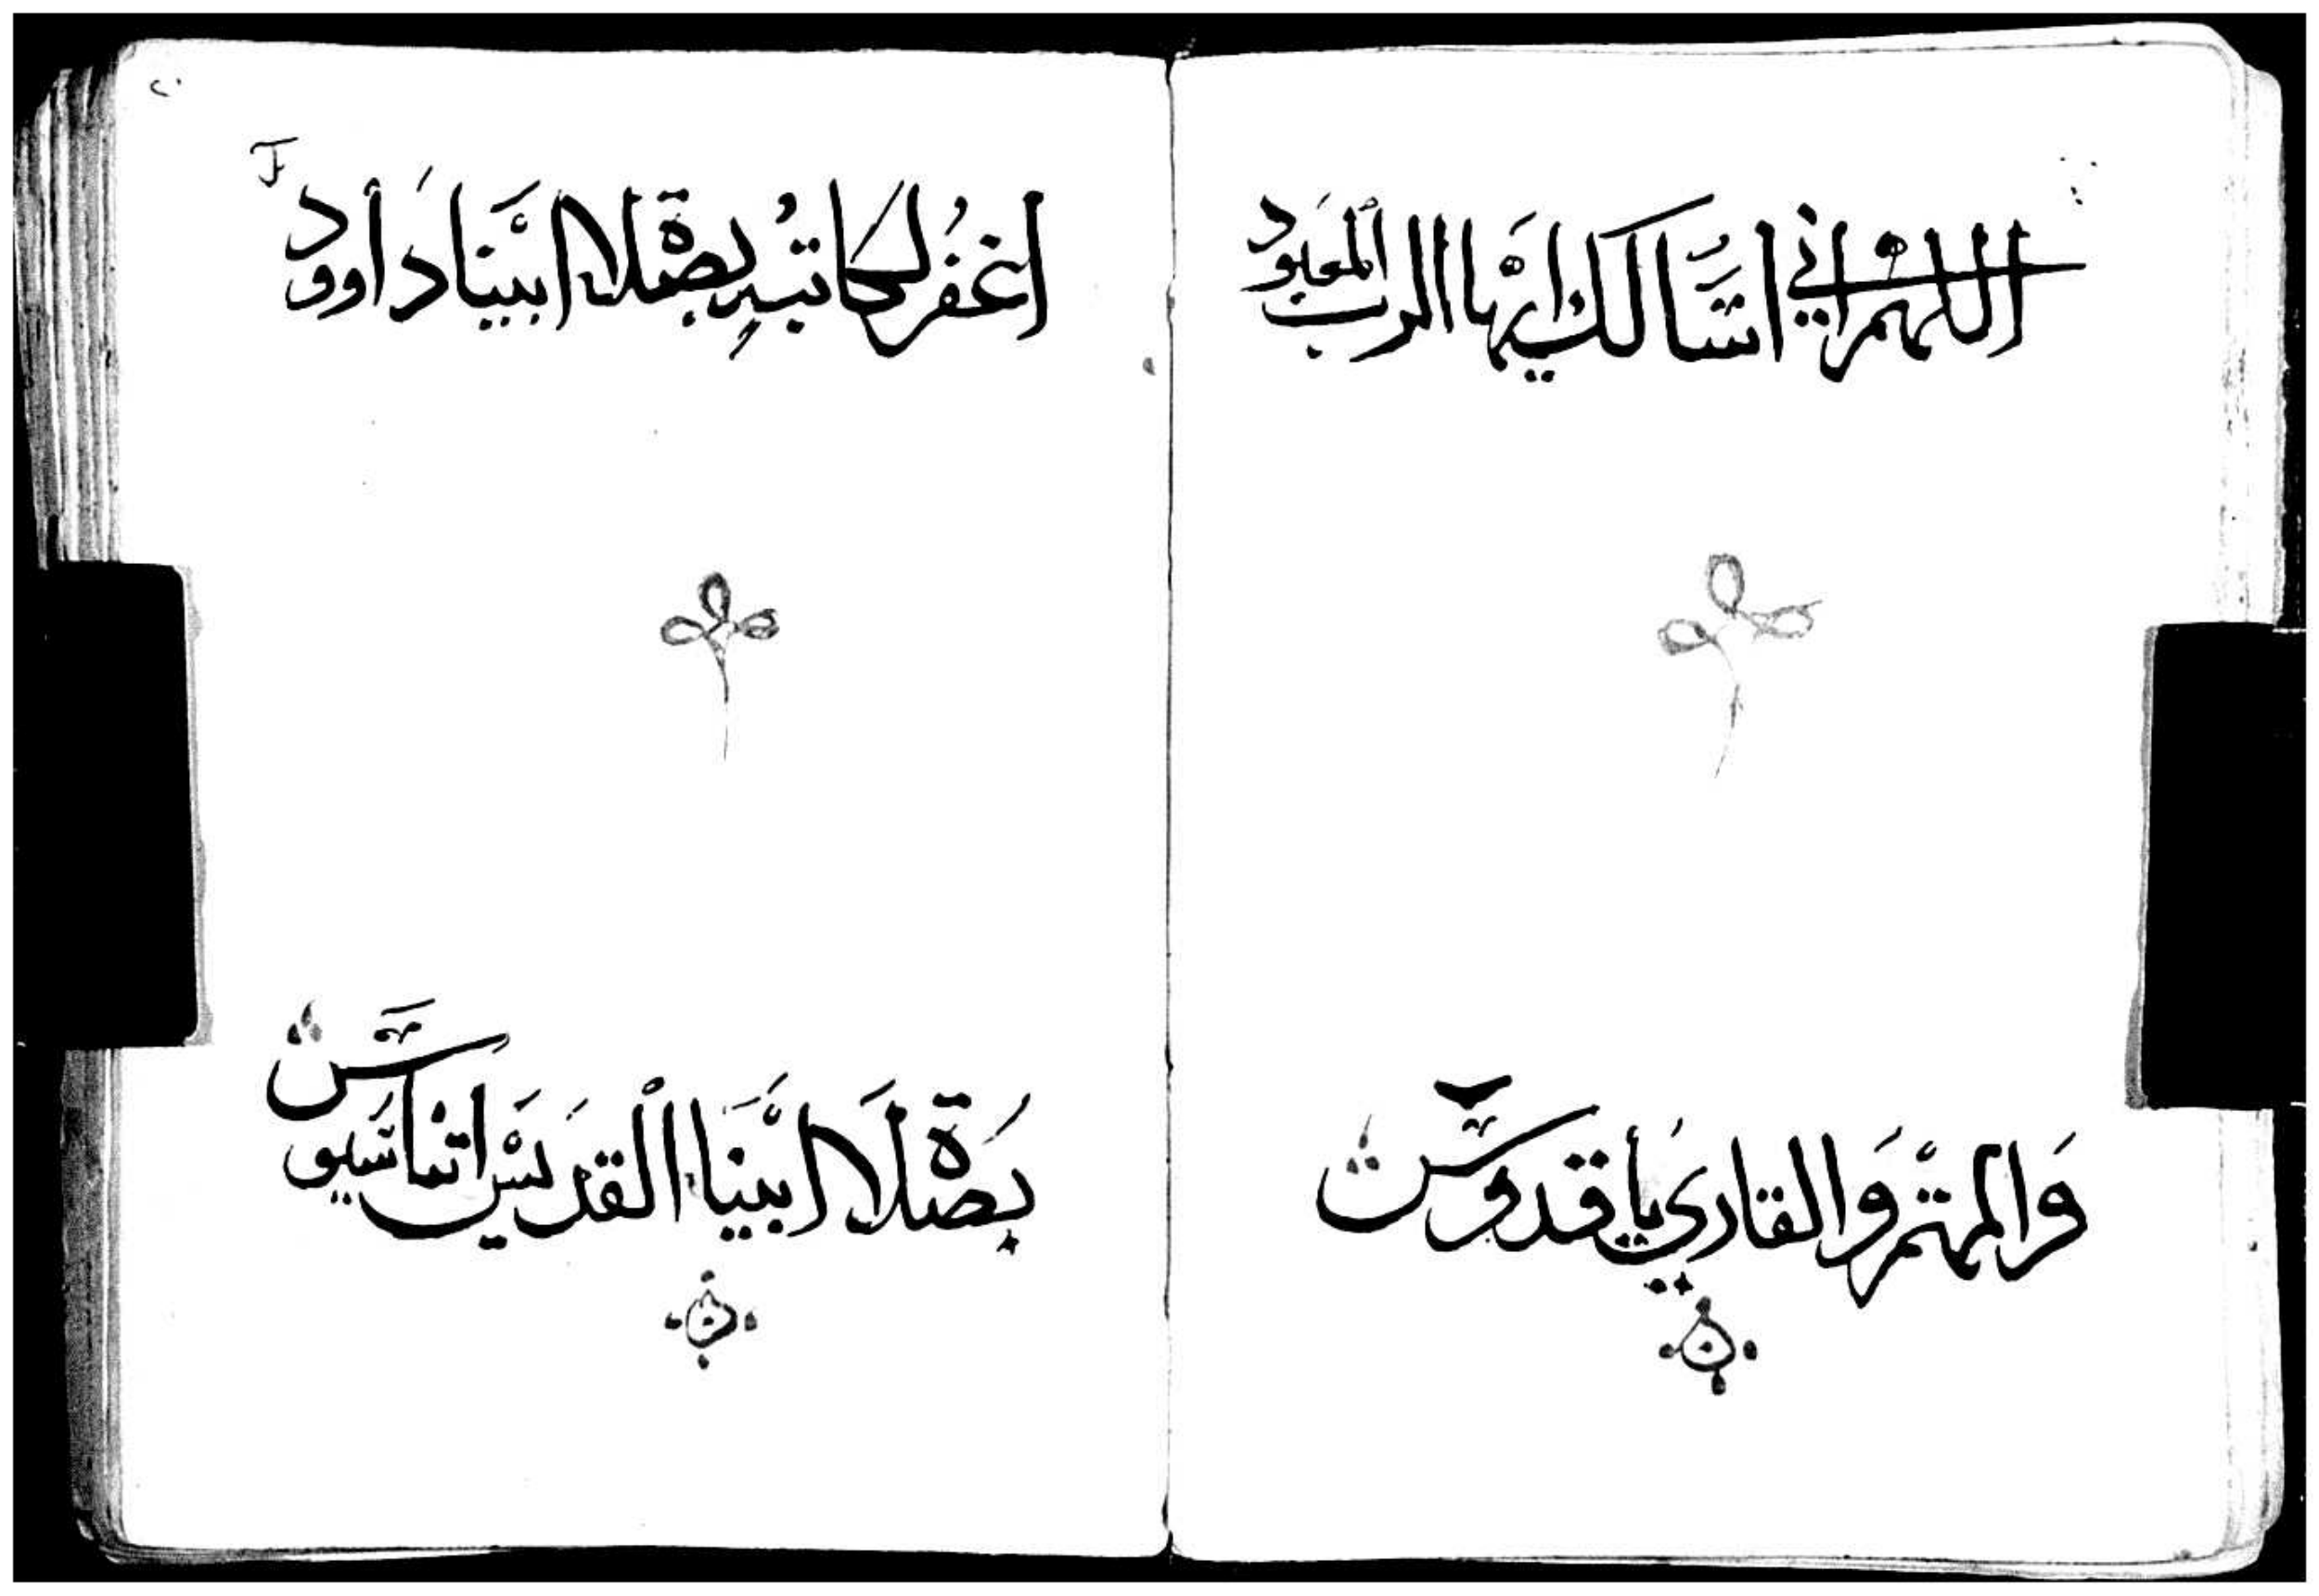 اللهم اني اسالك ايها الرب المعبود
والمهتم والقاري يا قدوس
اغفر لكاتبه بصلاة ابينا داوود
بصلاة ابينا القديس اتناسيوس